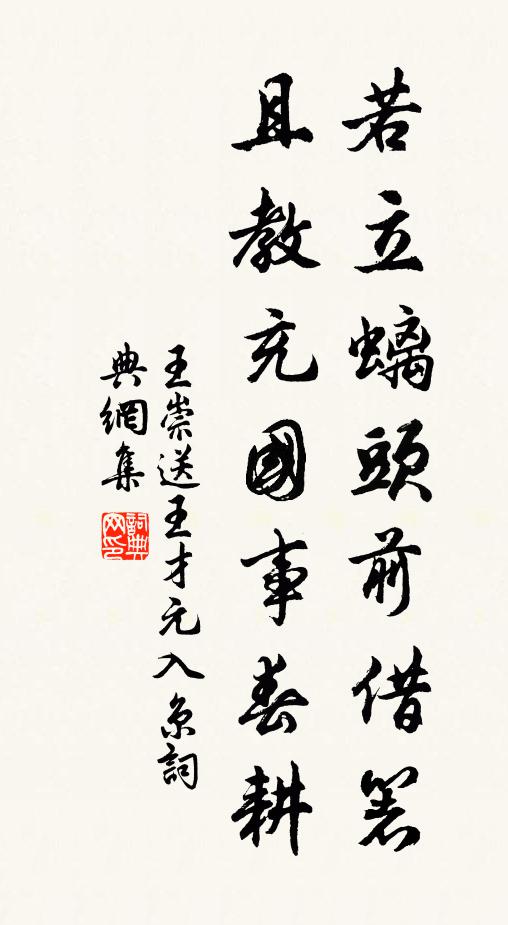 若立螭頭前借箸
且教充國事春耕
王崇送王才元入京詞
典網集
詞典网印